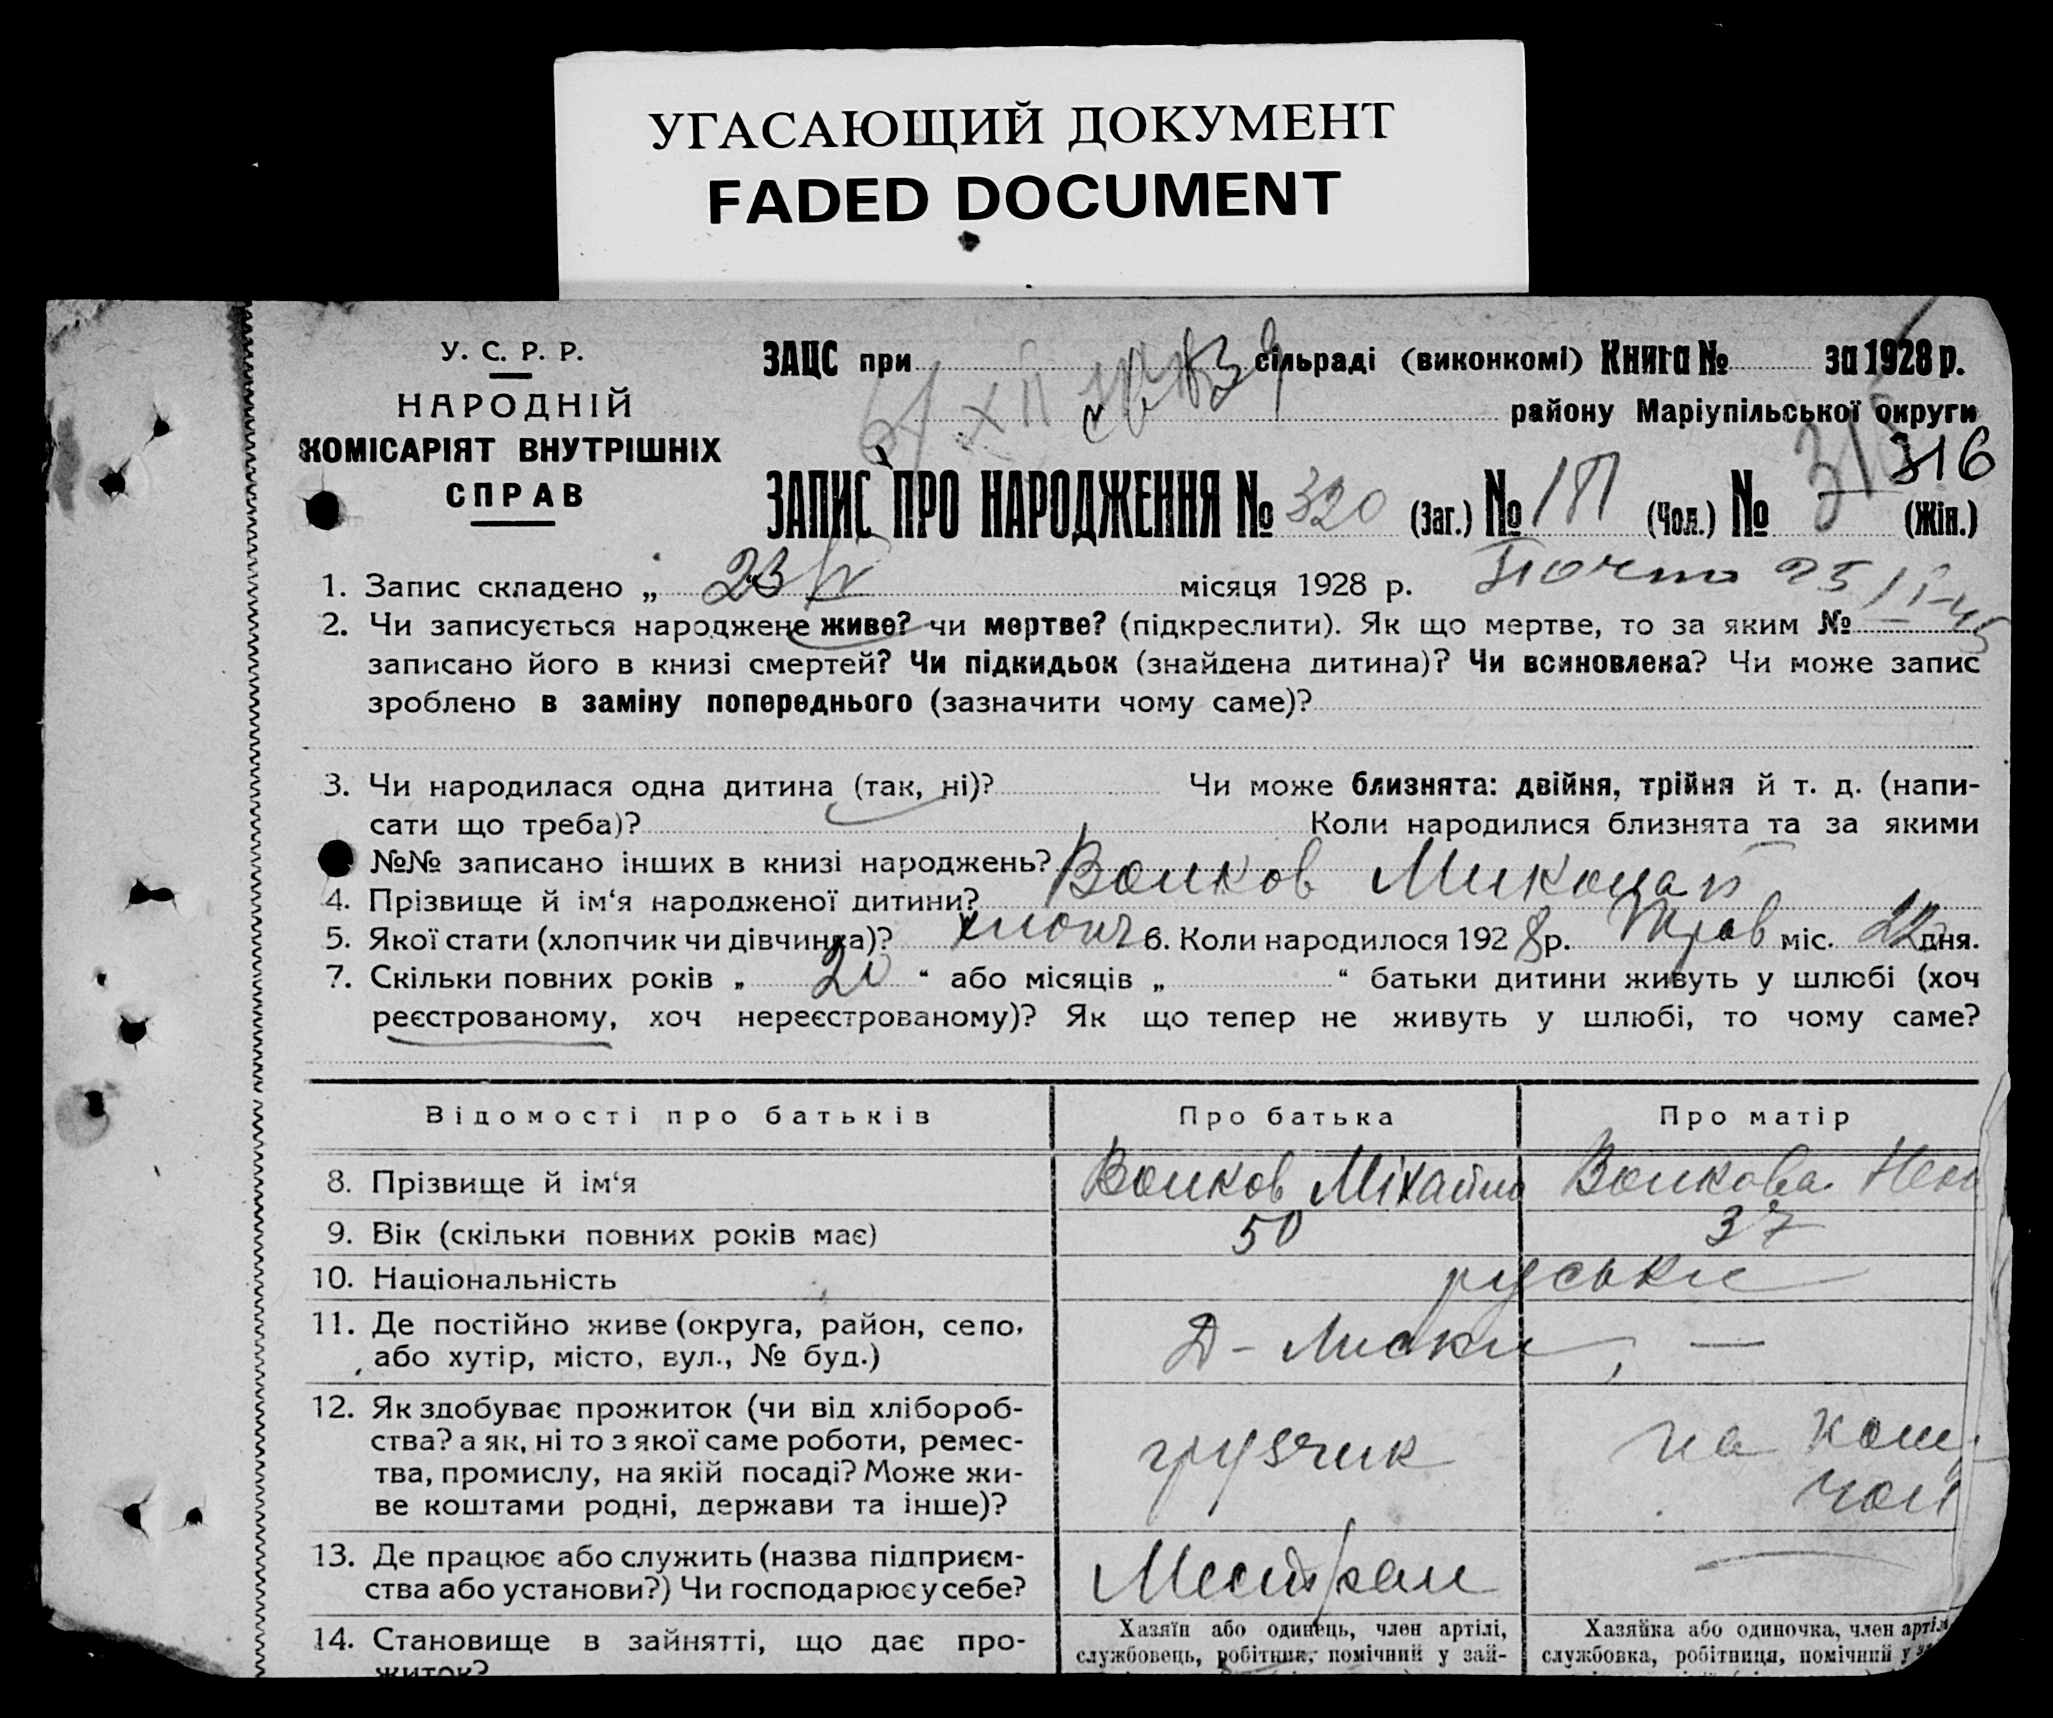 УГАСАЮЩИЙ ДОКУМЕНТ
FADED DOCUMENT
У. С. Р. Р.
НАРОДНІЙ
КОМІСАРІЯТ ВНУТРІШНІХ
СПРАВ
ЗАЦС при сільраді (виконкомі) Книга № за 1928 р.
району Маріупільської округи
316
ЗАПИС ПРО НАРОДЖЕННЯ № 320 (Заг.) № (Чол.) № (Жін.)
1. Запис складено „ 23 “ місяця 1928 р.
2. Чи записується народжене живе? чи мертве? (підкреслити). Як що мертве, то за яким №
записано його в книзі смертей? Чи підкидьок (знайдена дитина)? Чи всиновлена? Чи може запис
зроблено в заміну попереднього (зазначити чому саме)?
3. Чи народилася одна дитина (так, ні)? Чи може близнята: двійня, трійня й т. д. (напи-
сати що треба)? Коли народилися близнята та за якими
№№ записано інших в книзі народжень?
4. Прізвище й ім‘я народженої дитини? Волков Миколай
5. Якої стати (хлопчик чи дівчинка)? хлопч 6. Коли народилося 1928 р. Трав міс. 22 дня.
7. Скільки повних років „ 20 “ або місяців „ “ батьки дитини живуть у шлюбі (хоч
реєстрованому, хоч нереєстрованому)? Як що тепер не живуть у шлюбі, то чому саме?
Відомості про батьків Про батька Про матір
8. Прізвище й ім‘я Волков Міхайло Волкова
9. Вік (скільки повних років має) 50 37
10. Національність руськи
11. Де постійно живе (округа, район, село,
або хутір, місто, вул., № буд.) —
12. Як здобуває прожиток (чи від хлібороб-
ства? а як, ні то з якої саме роботи, ремес-
тва, промислу, на якій посаді? Може жи-
ве коштами родні, держави та інше)? грузчик на
13. Де працює або служить (назва підприєм-
ства або установи?) Чи господарює у себе? Местран —
14. Становище в зайнятті, що дає про-
житок?
Хазяїн або одинець, член артілі,
службовець, робітник, помічний у зай-
Хазяйка або одиночка, член артілі
службовка, робітниця, помічний у